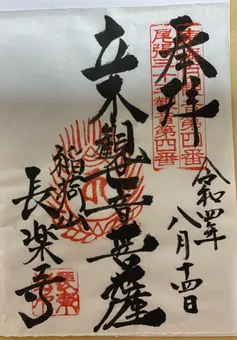 奉拝
尾張三十三観音第四番
令和四年
八月十四日
立木観世音菩薩
稲荷山
長楽寺